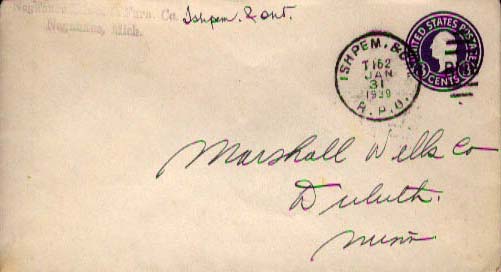 Furn. Co.
Negaunee, Mich.
Ishpem. & Ont.
UNITED STATES POSTAGE
3 CENTS 3
ISHPEM. &
T162
JAN
31
1939
R.P.O.
Marshall Wells Co
Duluth.
Minn